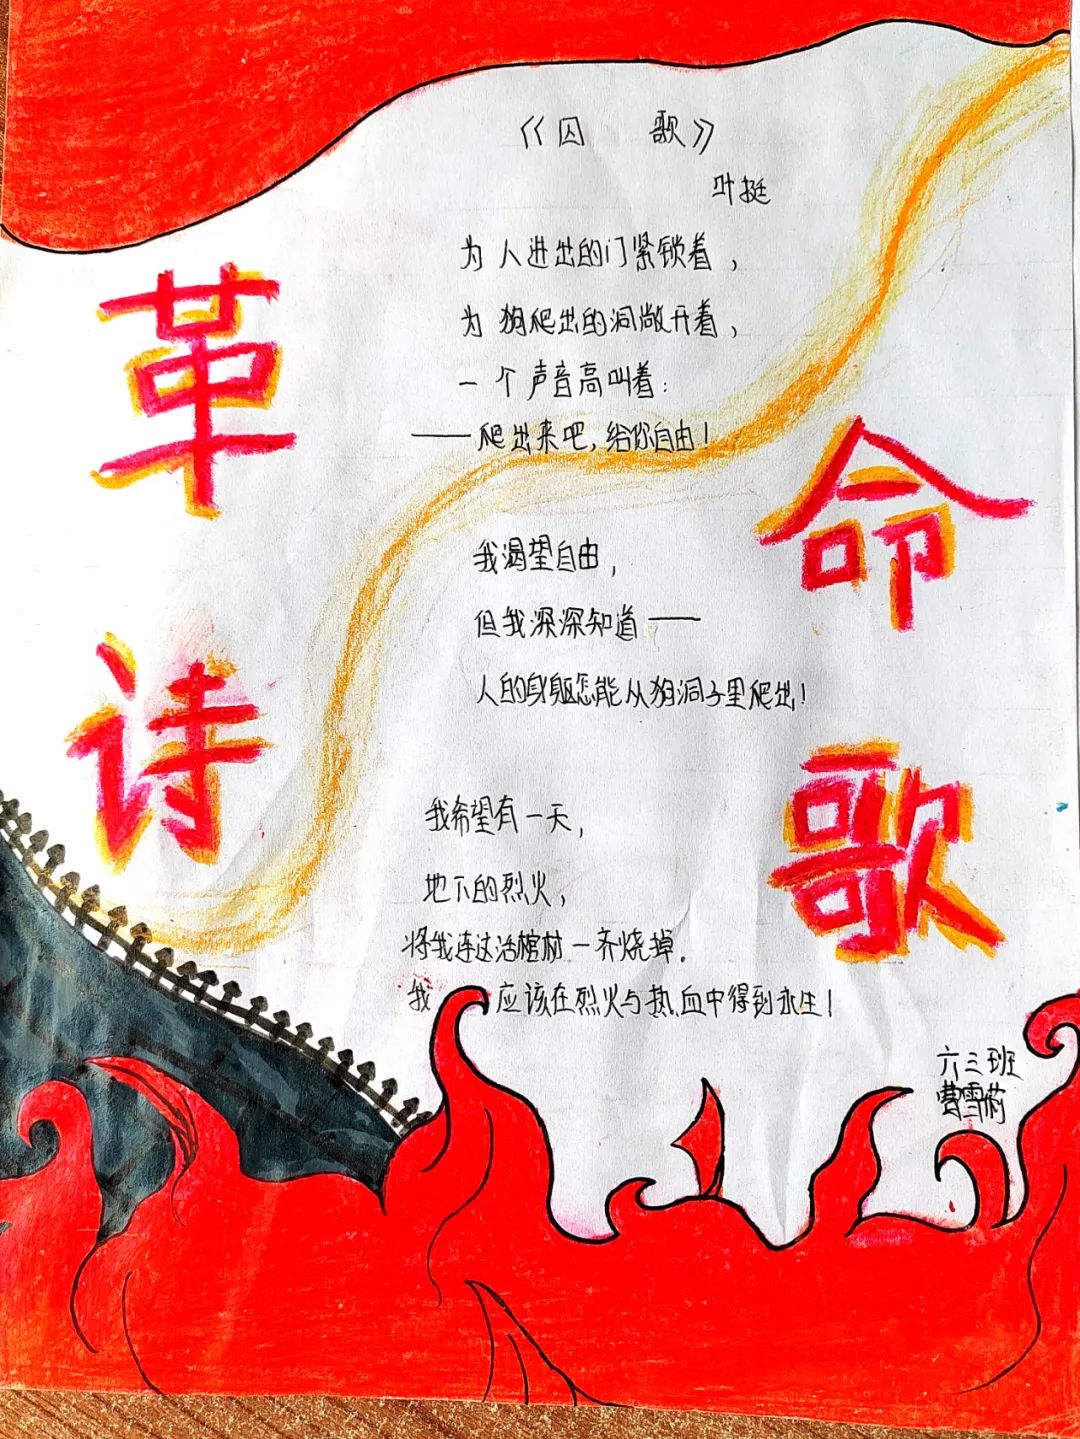 《囚 歌》
叶挺
为人进出的门紧锁着，
为狗爬出的洞敞开着，
一个声音高叫着：
——爬出来吧，给你自由！
我渴望自由，
但我深深知道——
人的身躯怎能从狗洞子里爬出！
我希望有一天，
地下的烈火，
将我连这活棺材一齐烧掉.
我 应该在烈火与热血中得到永生！
革
命
诗
歌
六三班
费雪莉